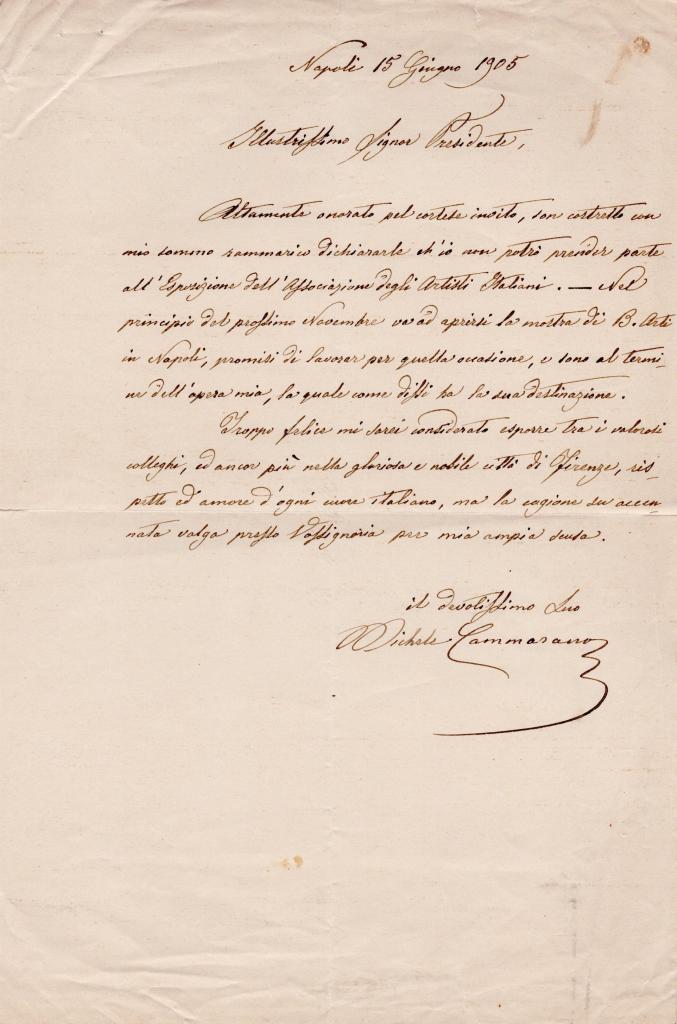 Napoli 15 Giugno 1905
Illustrissimo Signor Presidente,
Altamente onorato pel cortese invito, son costretto con
mio sommo rammarico dichiararle ch'io non potrò prender parte
all'Esposizione dell'Associazione degli Artisti Italiani. — Nel
principio del prossimo Novembre va ad aprirsi la mostra di B. Arti
in Napoli, promisi di lavorar per quella occasione, e sono al termi-
ne dell'opera mia, la quale come dissi ha la sua destinazione.
Troppo felice mi sarei considerato esporre tra i valorosi
colleghi, ed ancor più nella gloriosa e nobile città di Firenze, ris-
petto ed amore d'ogni cuore italiano, ma la cagione su accen-
nata valga presso Vossignoria per mia ampia scusa.
il devotissimo Suo
Michele Cammarano